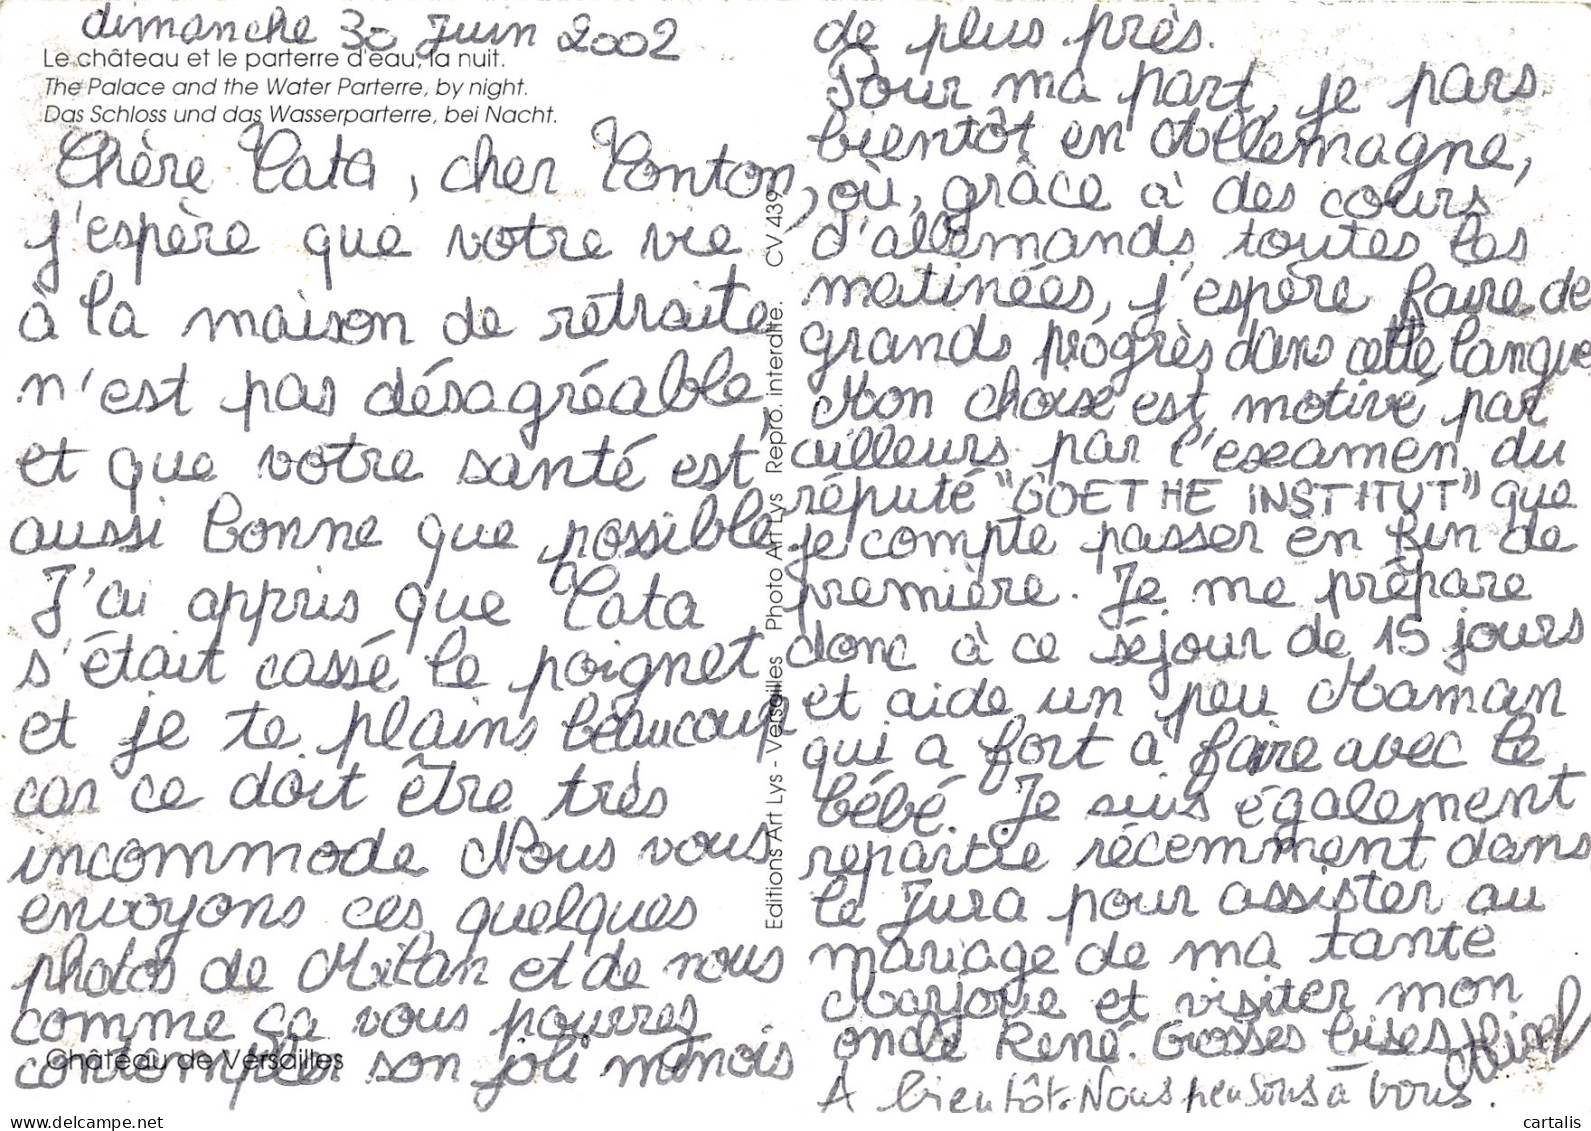 dimanche 30 Juin 2002
Le château et le parterre d'eau, la nuit.
The Palace and the Water Parterre, by night.
Das Schloss und das Wasserparterre, bei Nacht.
Chère Tata, cher Tonton,
j'espère que votre vie
à la maison de retraite
n'est pas désagréable,
et que votre santé est
aussi bonne que possible
J'ai appris que Tata
s'était cassé le poignet
et je te plains beaucoup
car ce doit être très
incommode Nous vous
envoyons ces quelques
photos de Milan et de nous
comme ça vous pourrez
contempler son joli minois
Château de Versailles
Editions Art Lys - Versailles Photo Art Lys Repro. interdite. CV 439
de plus près.
Pour ma part, je pars
bientôt en Allemagne,
où, grâce à des cours
d'allemands toutes les
matinées, j'espère faire de
grands progrès dans cette langue
Mon choix est motivé par
ailleurs par l'examen du
réputé "GOETHE INSTITUT" que
je compte passer en fin de
première. Je me prépare
donc à ce séjour de 15 jours
et aide un peu Maman
qui a fort à faire avec le
bébé. Je suis également
repartie récemment dans
le Jura pour assister au
mariage de ma tante
Marjorie et visiter mon
oncle René. Grosses bises
A bientôt. Nous pensons à vous.
delcampe.net
cartalis